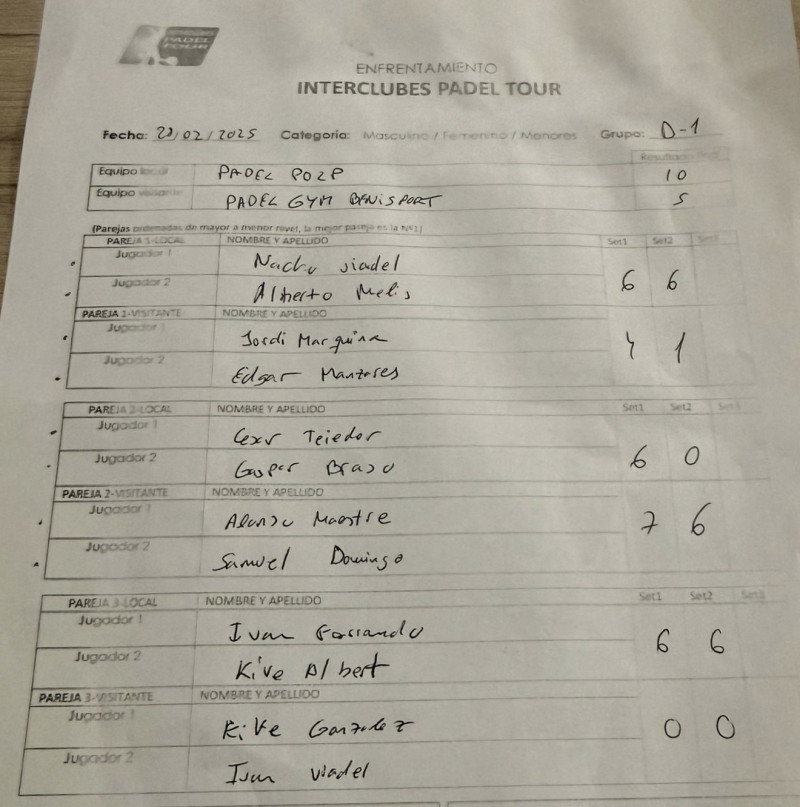 INTERCLUBES
PADEL
TOUR
ENFRENTAMIENTO
INTERCLUBES PADEL TOUR
Fecha: 23/02/2025 Categoría: Masculino / Femenino / Menores Grupo: D-1
Resultado Final
Equipo local PADEL POZP 10
Equipo visitante PADEL GYM BENISPORT 5
(Parejas ordenadas de mayor a menor nivel, la mejor pareja es la Nº1)
PAREJA 1-LOCAL NOMBRE Y APELLIDO Set1 Set2 Set3
Jugador 1 Nacho viadel
Jugador 2 Alberto Melis 6 6
PAREJA 1-VISITANTE NOMBRE Y APELLIDO
Jugador 1 Jordi Marquina 4 1
Jugador 2 Edgar Manzares
PAREJA 2-LOCAL NOMBRE Y APELLIDO Set1 Set2 Set3
Jugador 1 Cesar Tejedor
Jugador 2 Gaspar Bravo 6 0
PAREJA 2-VISITANTE NOMBRE Y APELLIDO
Jugador 1 Alonso Maestre 7 6
Jugador 2 Samuel Domingo
PAREJA 3-LOCAL NOMBRE Y APELLIDO Set1 Set2 Set3
Jugador 1 Ivan Ferrando 6 6
Jugador 2 Kike Albert
PAREJA 3-VISITANTE NOMBRE Y APELLIDO
Jugador 1 Kike Gonzalez 0 0
Jugador 2 Ivan viadel